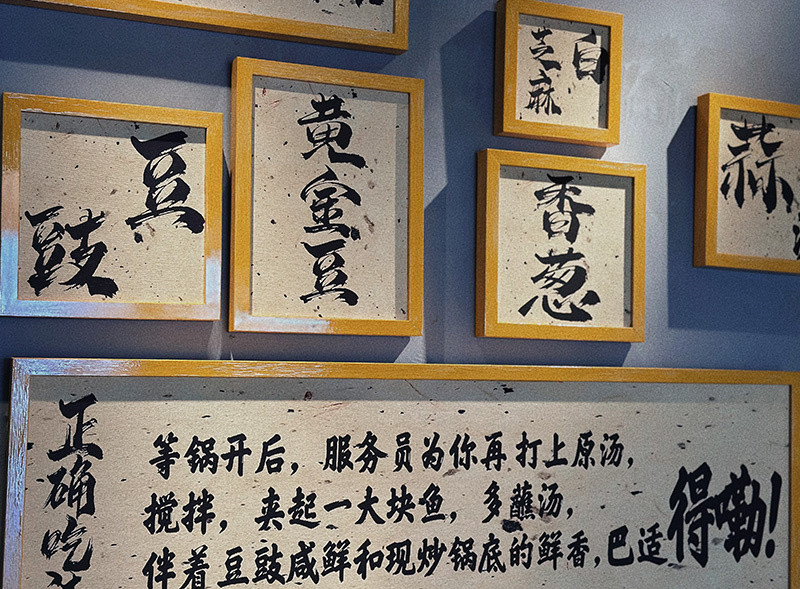 豆豉
黄金豆
白芝麻
香葱
蒜
正确吃
等锅开后，服务员为你再打上原汤，
搅拌，夹起一大块鱼，多蘸汤，
伴着豆豉咸鲜和现炒锅底的鲜香，巴适得嘞！